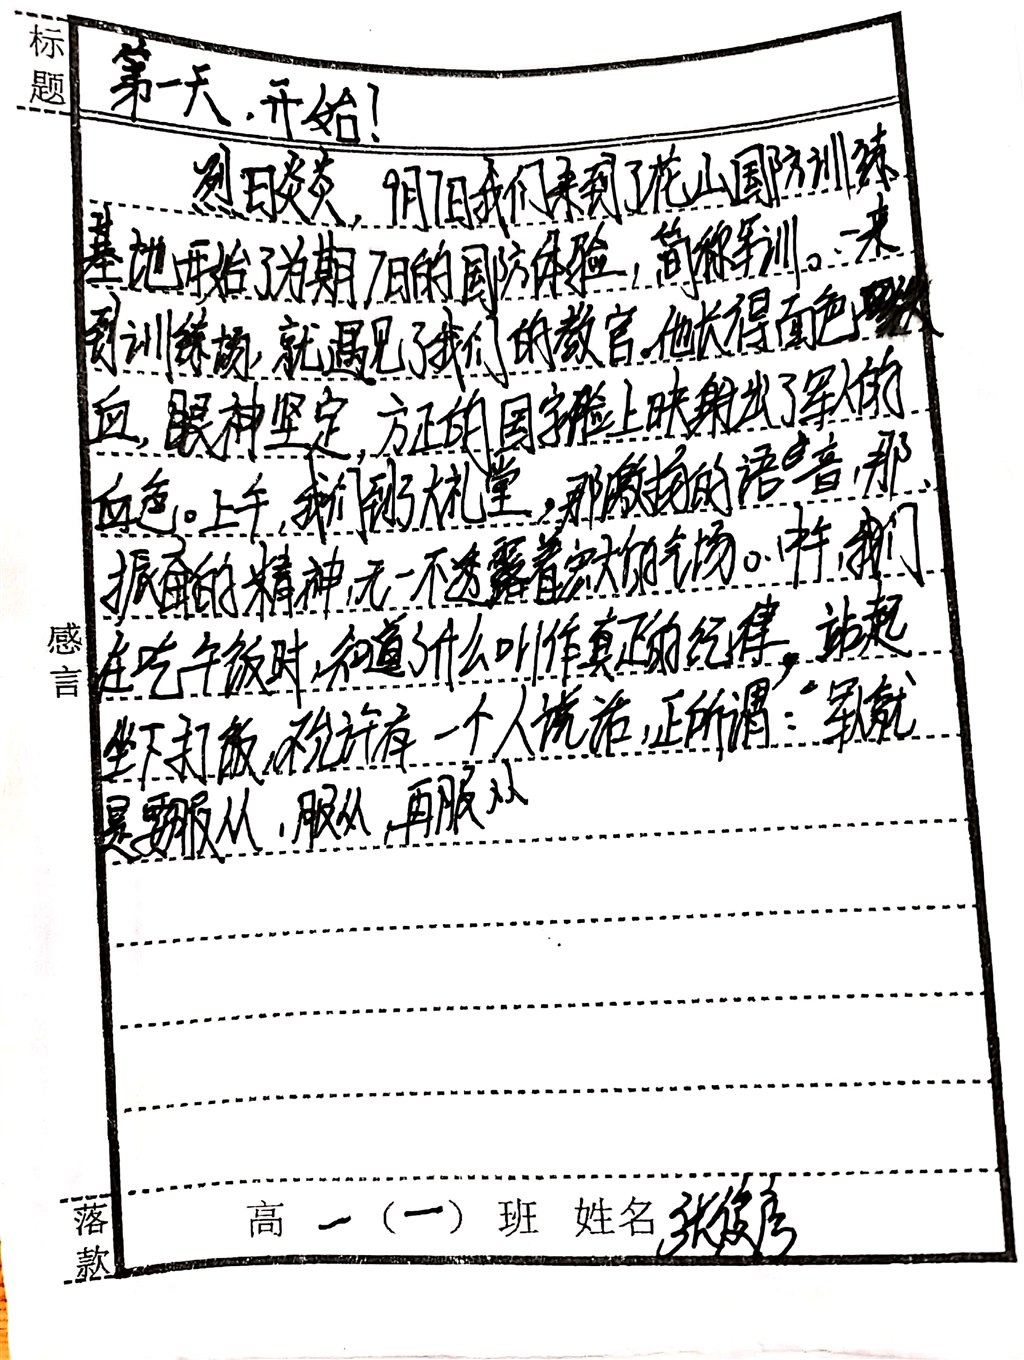 标题
第一天，开始！
烈日炎炎，9月7日我们来到了花山国防训练
基地开始了为期7日的国防体验，简称军训。一来
到训练场，就遇见了我们的教官。他长得面色
血，眼神坚定，方正的国字脸上映射出了军人的
血色。上午，我们到了大礼堂，那激扬的语音，那
振奋的精神，无一不透露着宏大的气场。中午，我们
在吃午饭时，知道了什么叫作真正的纪律，站起
坐下打饭，不允许有一个人说话，正所谓：“军人就
是要服从，服从，再服从
感言
落款
高一（一）班 姓名 张俊